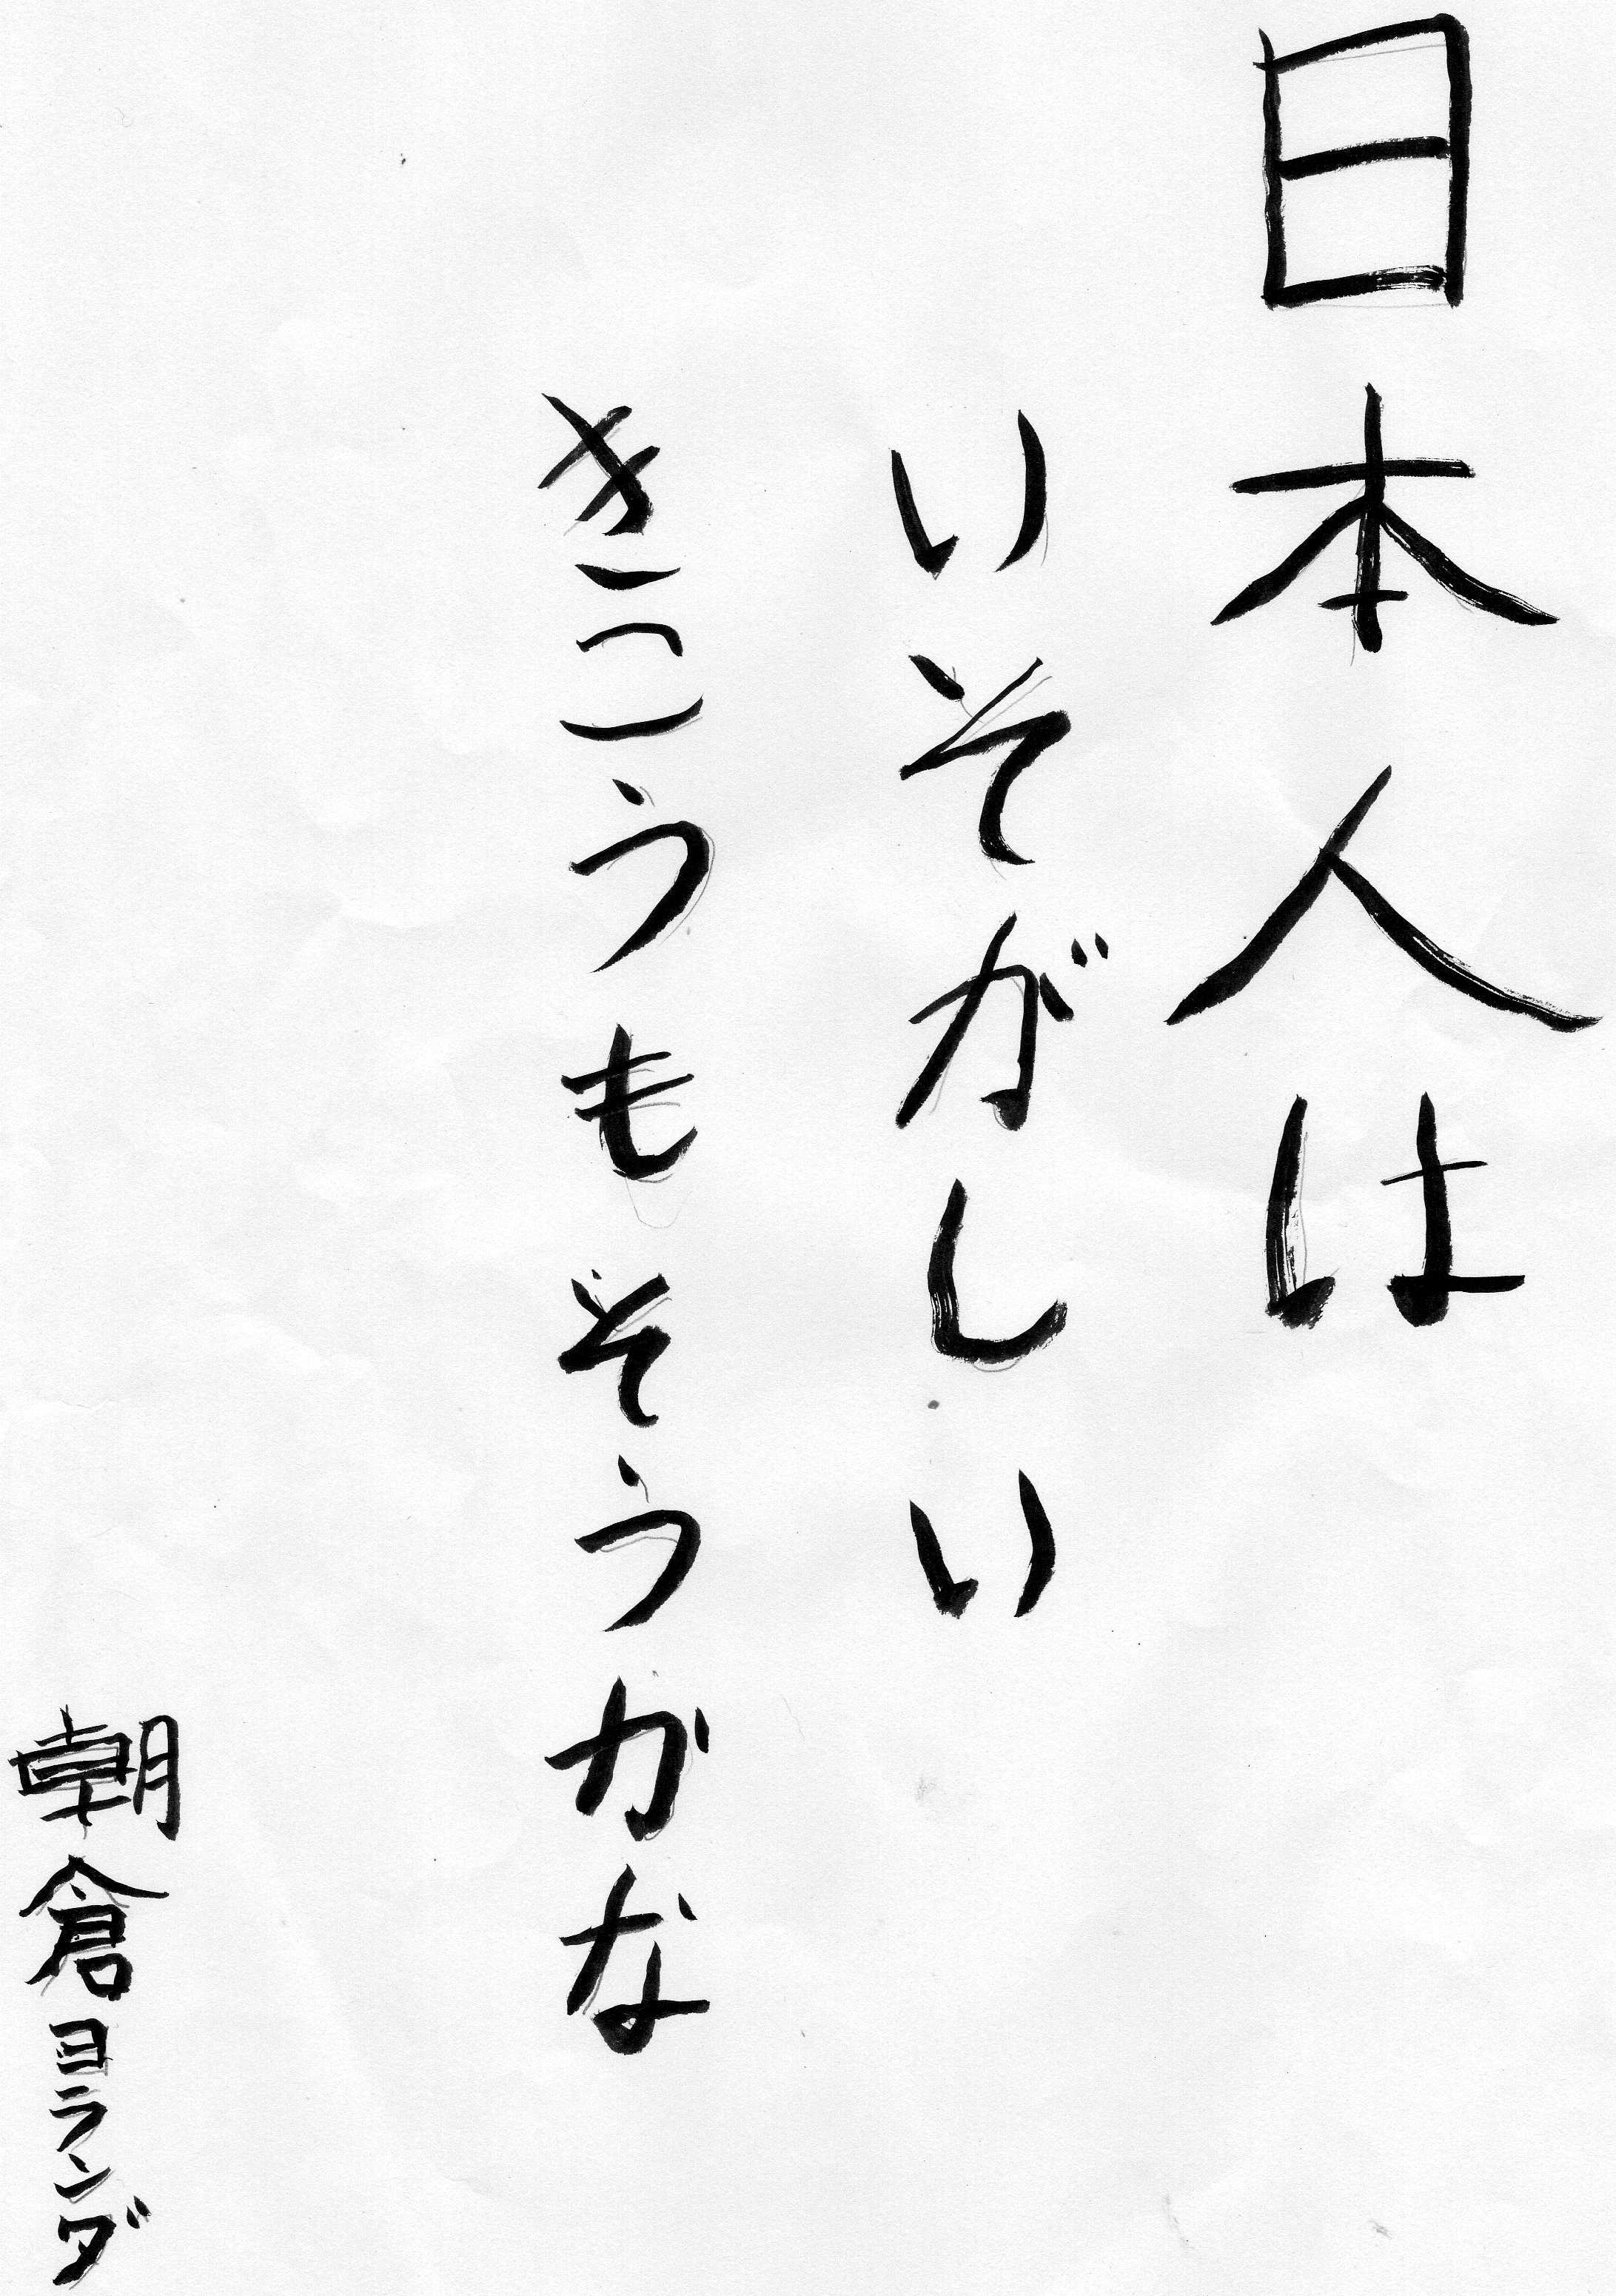 日本人は
いそがしい
きこうもそうかな
朝倉ヨランダ